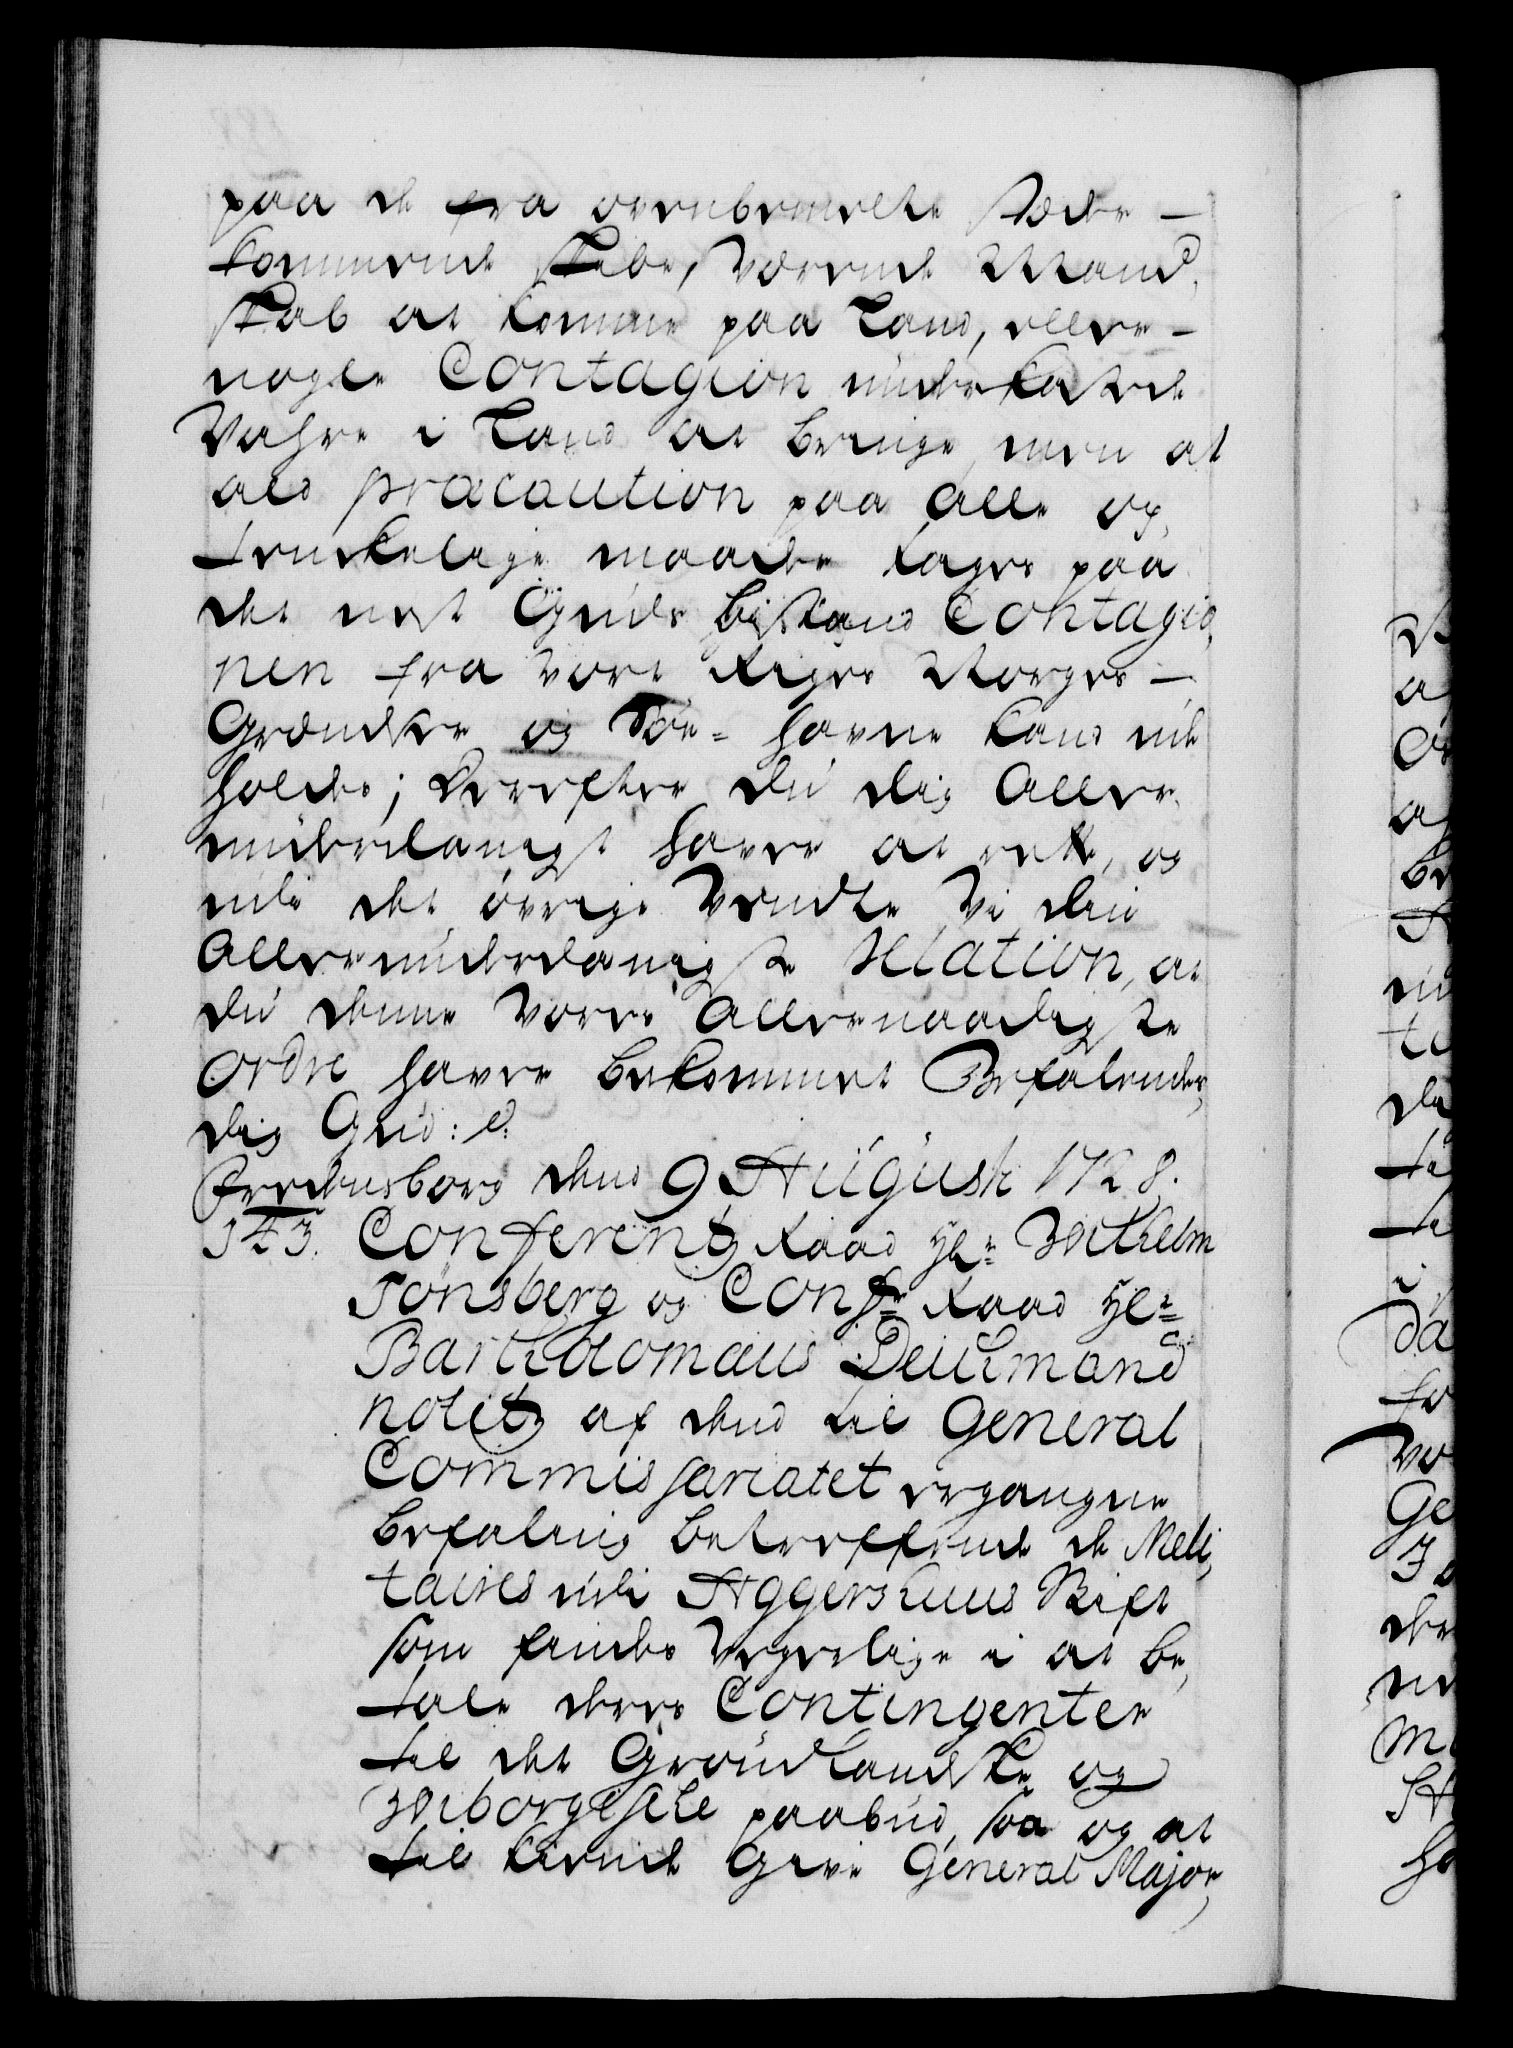 paa de fra ovenbemelte Stæder
kommende Skibe, værende Mand-
skab at komme paa Land, eller
nogle Contagion underkastede
Vahre i Land at bringe, men at
ald præcaution paa alle og
tænckelige maader tages paa
det nest Guds bistand Contagio-
nen fra Vort Riges Norges
Grændser og Søe-havne kand ude
holdes; Hvorefter du dig Aller-
underdanigst haver at rette, og
udi det øvrige Vendte Vi din
Allerunderdanigste Relation, at
du denne Vores Allernaadigste
Ordre haver bekommet Befalendes
dig Gud: e:
Fredensborg dend 9 Augusti 1728.
143. Conferentz Raad Hr: Wilhelm
Tönsberg og Confr: Raad Hr:
Bartholomæus Deichmand
notitz af dend til General
Commissariatet ergangne
befaling betreffende de Meli-
taires udi Aggershuus Stift
som findes Vegerlige i at be-
tale deres Contingenter
til det Grønlandske og
Wiborgische paabud, saa og at
til kiende give General Major